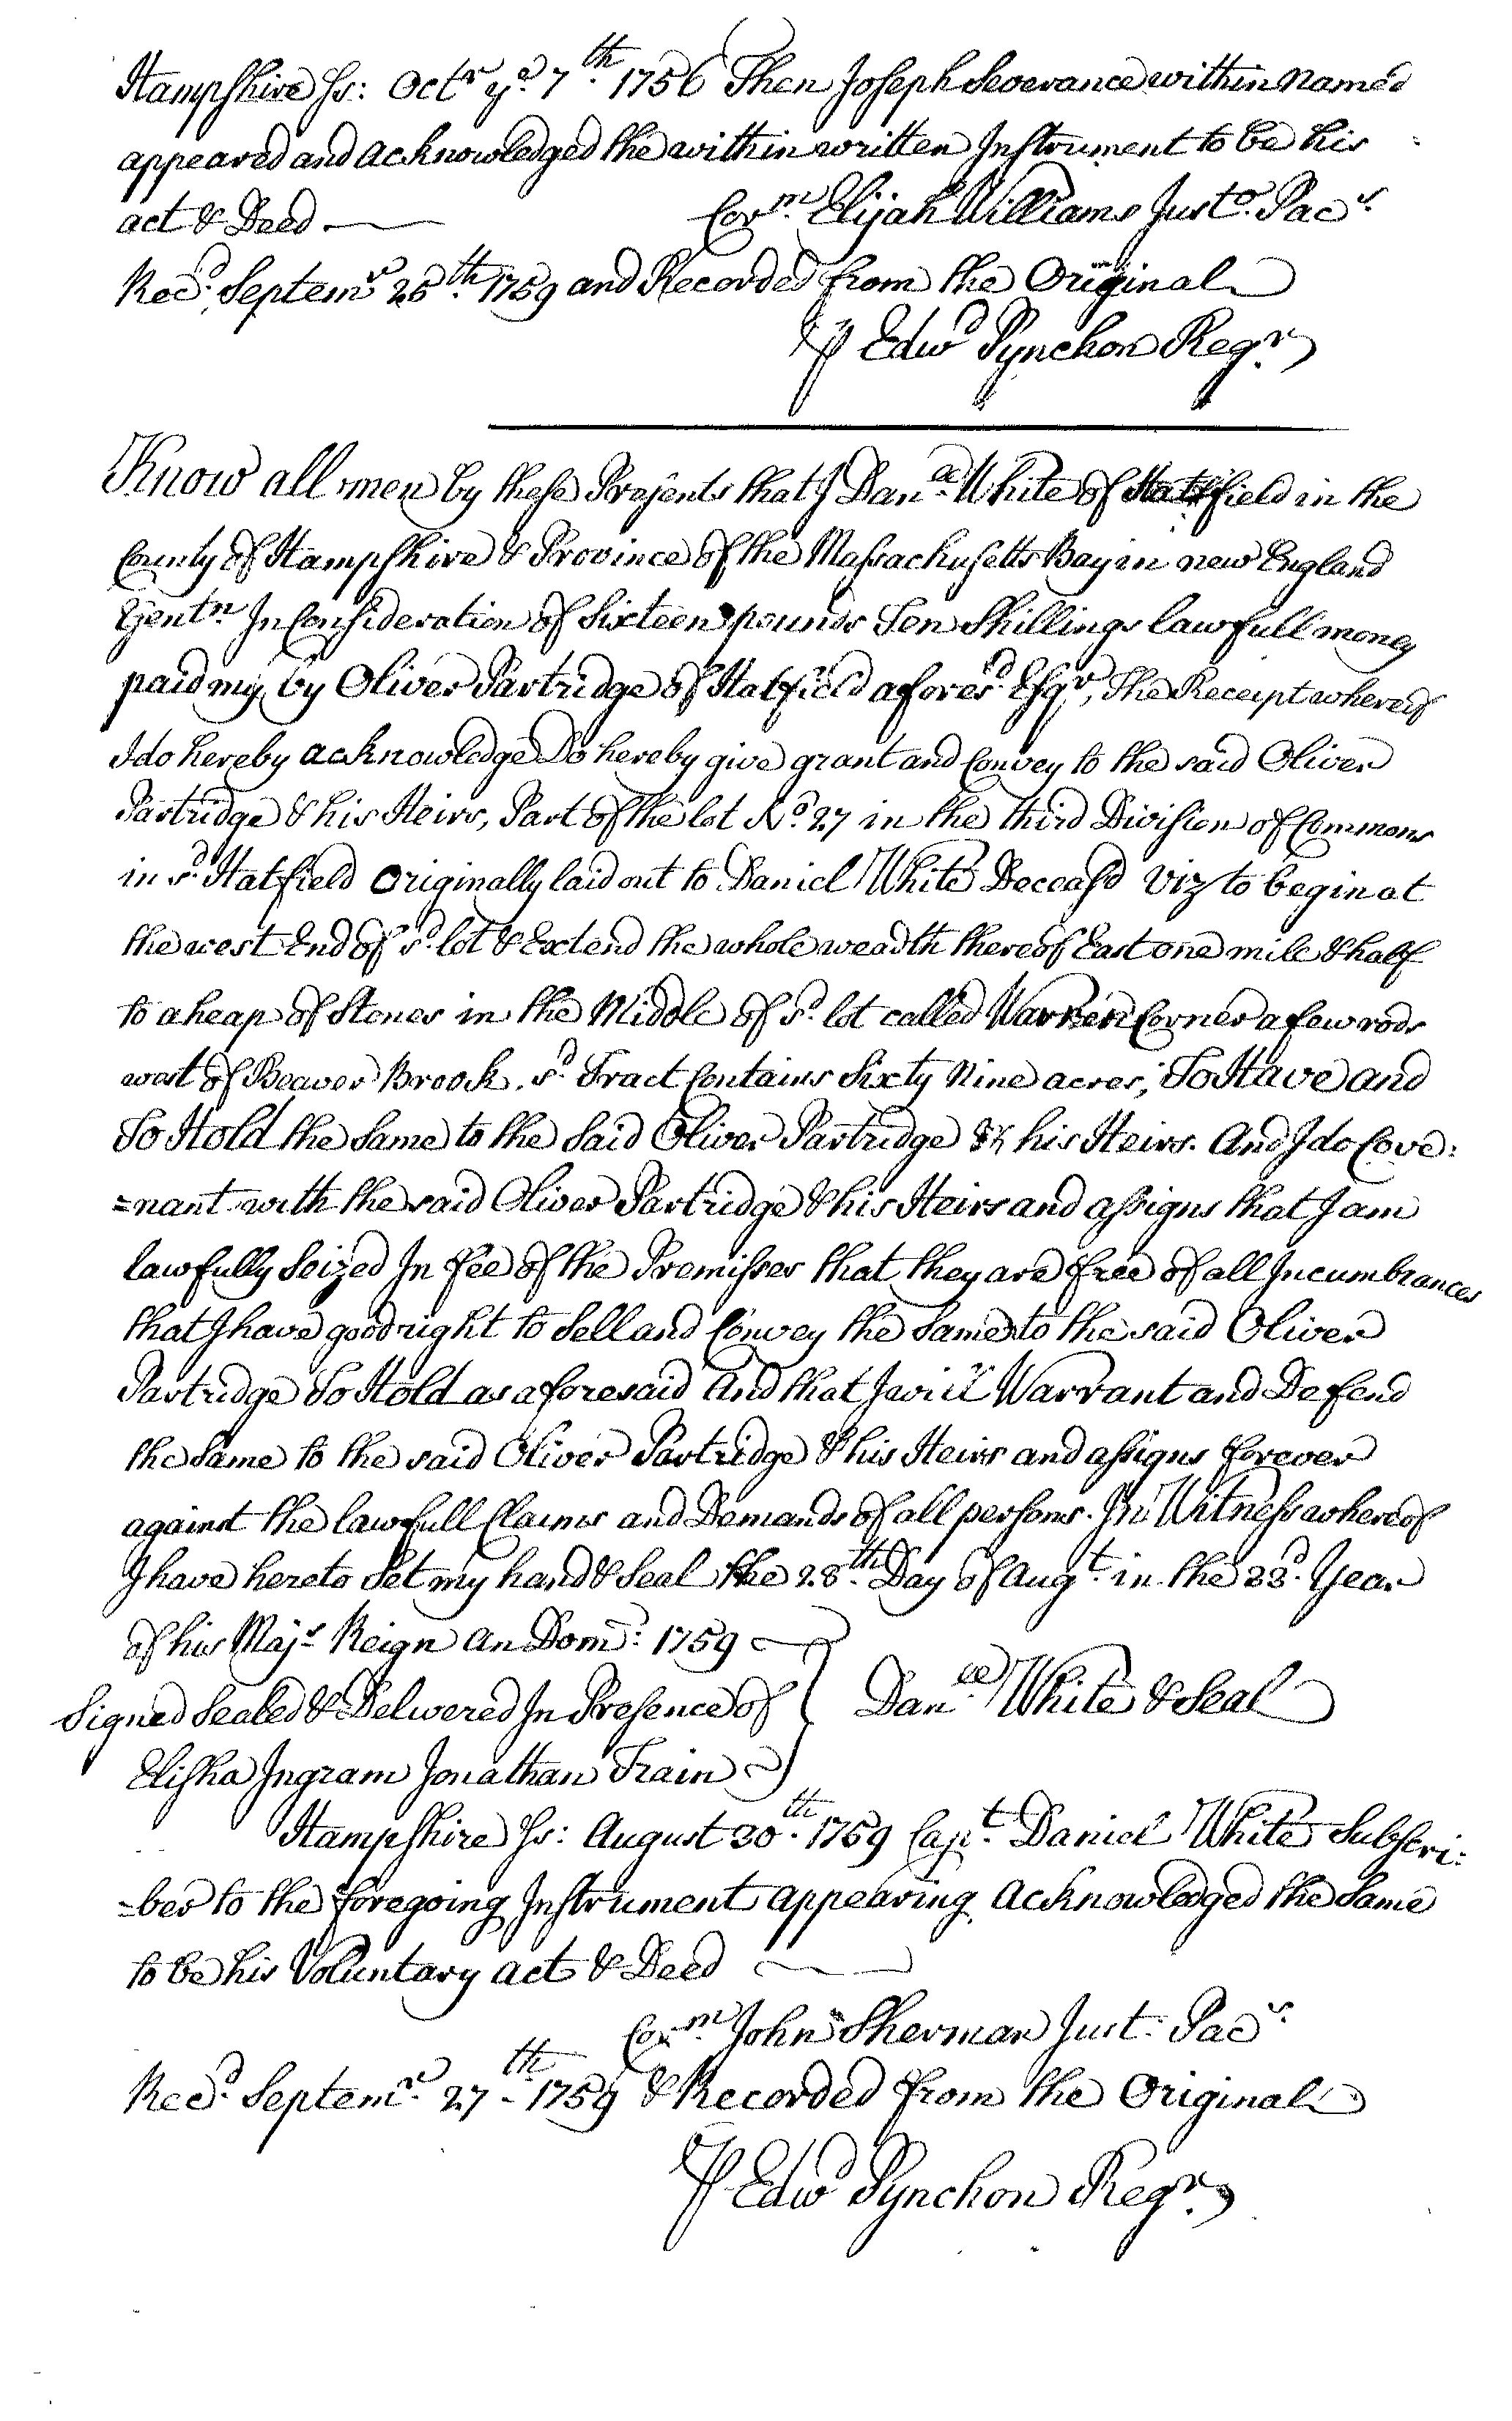 Hampshire Ss: Octr ye 7th 1756 Then Joseph Severance within Named
appeared and acknowledged the within written Instrument to be his
act & Deed
Corm Elijah Williams Justo Pacs
Recd Septemr 25th 1759 and Recorded from the Original
⅌ Edwd Pynchon Regr
Know all men by these Presents that I Danll White of Hatfield in the
County of Hampshire & Province of the Massachusetts Bay in new England
Gentn In Consideration of Sixteen pounds Ten Shillings lawfull money
paid my by Oliver Partridge of Hatfield aforesd Esqr, The Receipt whereof
I do hereby acknowledge Do hereby give grant and Convey to the said Oliver
Partridge & his Heirs, Part of the lot No 27 in the third Division of Commons
in sd Hatfield Originally laid out to Daniel White Deceasd Viz to begin at
the west End of sd lot & Extend the whole weadth thereof East one mile & half
to a heap of Stones in the Middle of sd lot called Warren Corner a few rods
west of Beaver Brook. sd Tract Contains Sixty Nine acres, To Have and
To Hold the Same to the Said Oliver Partridge & his Heirs. And I do Cove:
=nant with the said Oliver Partridge & his Heirs and assigns that I am
lawfully Seized In Fee of the Premisses that they are free of all Incumbrances
that I have good right to Sell and Convey the Same to the said Oliver
Partridge To Hold as aforesaid And that I will Warrant and Defend
the Same to the said Oliver Partridge & his Heirs and assigns forever
against the lawfull Claims and Demands of all persons. In Witness whereof
I have hereto Set my hand & Seal the 28th Day of Augt in the 33d Year
of his Majs Reign An Dom: 1759
Signed Sealed & Delivered In Presence of Danll White & Seal
Elisha Ingram Jonathan Train
Hampshire Ss: August 30th 1759 Capt Daniel White Subscri:
=ber to the foregoing Instrument appearing Acknowledged the Same
to be his Voluntary act & Deed
Corm John Sherman Just. Pacs
Recd Septemr 27th 1759 & Recorded from the Original
⅌ Edwd Pynchon Regr